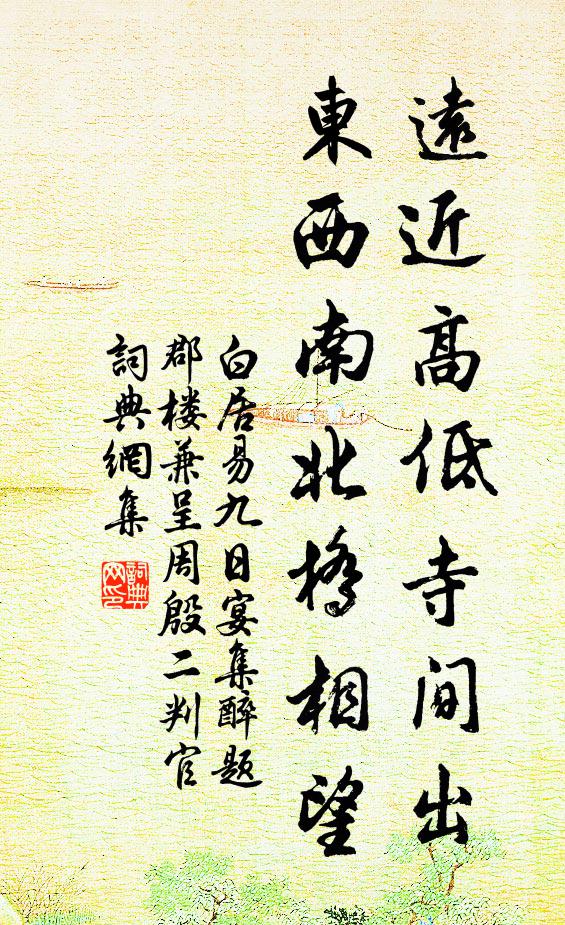 遠近髙低寺間出
東西南北橋相望
白居易九日宴集醉題
郡楼兼呈周殷二判官
詞典網集
詞典
网印